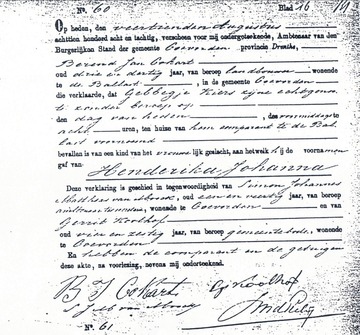 No. 60 Blad 16
Op heden, den veertienden Augustus
achttien honderd acht en tachtig, verscheen voor mij ondergeteekende, Ambtenaar van den
Burgerlijken Stand der gemeente Coevorden provincie Drenthe,
Berend Jan Cohart
oud drie en dertig jaar, van beroep landbouwer wonende
te de Ballast in de gemeente Coevorden
die verklaarde, dat Gebbegje Kiers zijne echtgenoote
zonder beroep op
den dag van heden, des middags te
acht uren, ten huize van hem comparant te de Bal
last voornoemd
bevallen is van een kind van het vrouwelijk geslacht, aan hetwelk hij de voornamen
gaf van Hendericka Johanna
Deze verklaring is geschied in tegenwoordigheid van Simon Johannes
oud een en veertig jaar, van beroep
wonende te Coevorden en van
Gerrit Koolhof
oud vier en zestig jaar, van beroep gemeentebode, wonende
te Coevorden
En hebben de comparant en de getuigen
deze akte, na voorlezing, nevens mij onderteekend.
B J Cohart G Koolhof
No. 61